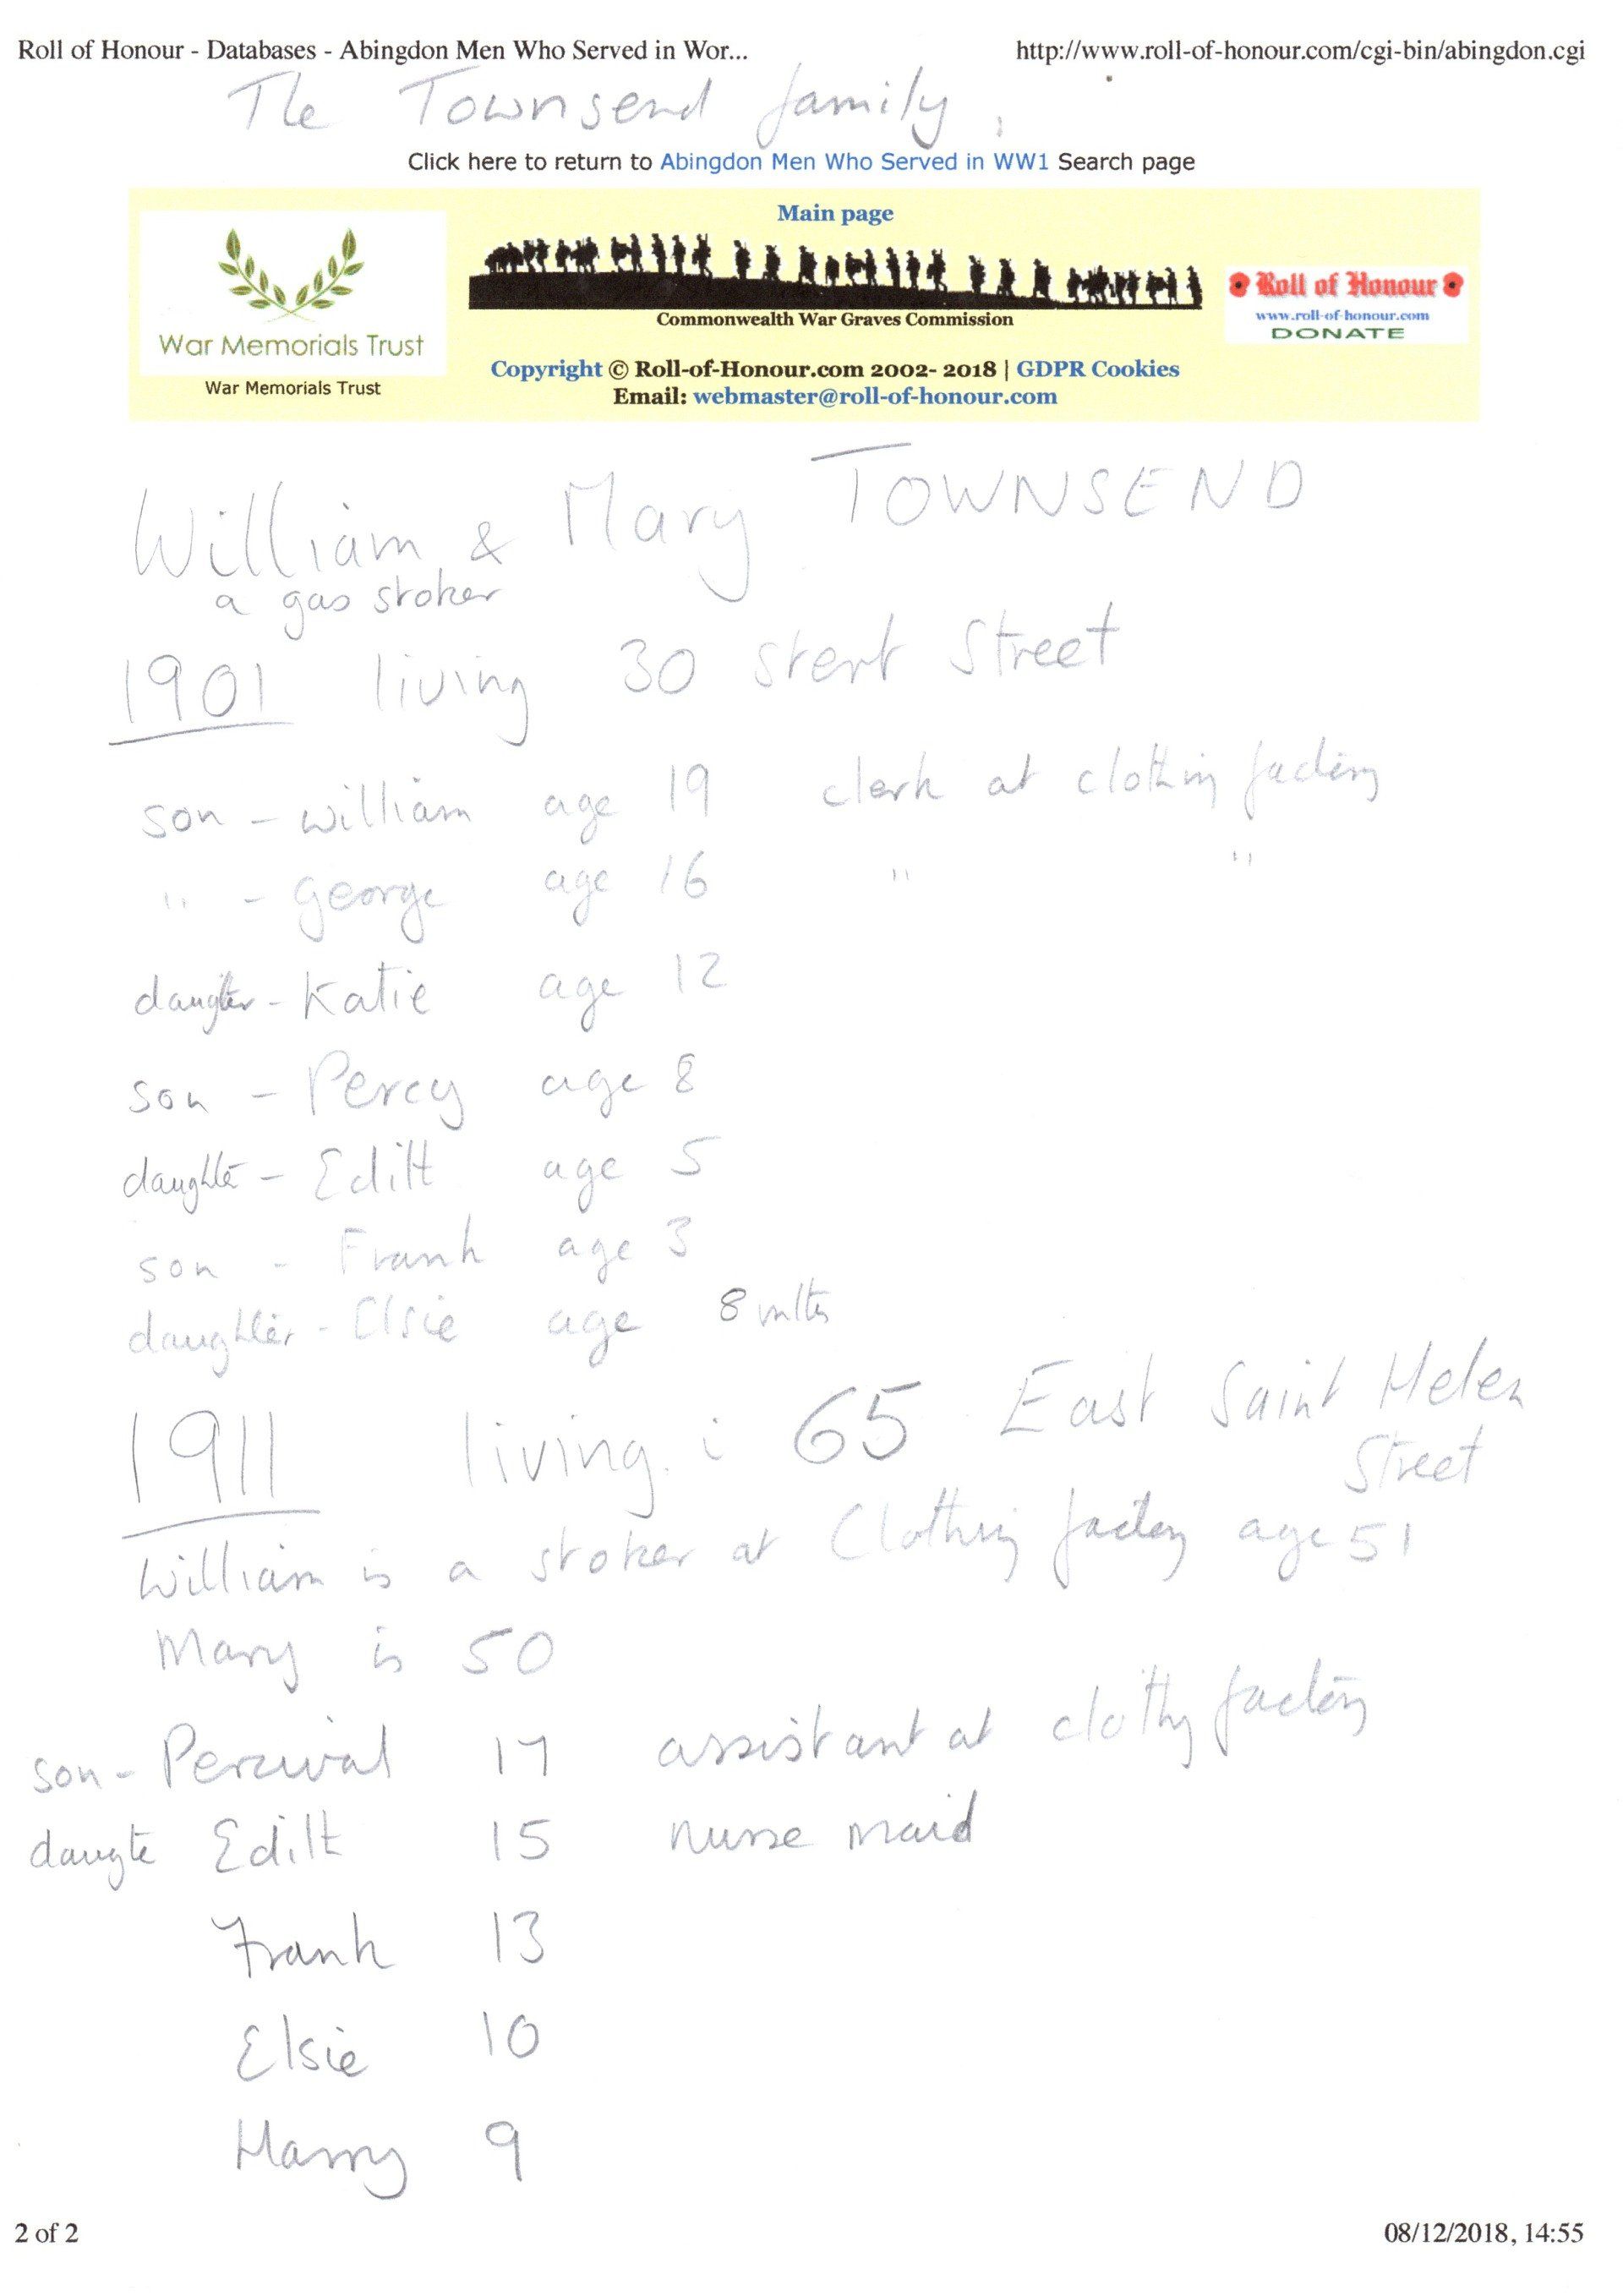 Roll of Honour - Databases - Abingdon Men Who Served in Wor... http://www.roll-of-honour.com/cgi-bin/abingdon.cgi
The Townsend family
Click here to return to Abingdon Men Who Served in WW1 Search page
Main page
War Memorials Trust
War Memorials Trust
Commonwealth War Graves Commission
Roll of Honour
www.roll-of-honour.com
DONATE
Copyright © Roll-of-Honour.com 2002- 2018 | GDPR Cookies
Email: webmaster@roll-of-honour.com
William & Mary TOWNSEND
a gas stoker
1901 living 30 Stert Street
son - William age 19 clerk at clothing factory
" - George age 16 " "
daughter - Katie age 12
son - Percy age 8
daughter - Edith age 5
son - Frank age 3
daughter - Elsie age 8 mths
1911 living i 65 East Saint Helen
Street
William is a stoker at Clothing factory age 51
Mary is 50
son - Percival 17 assistant at clothing factory
daughter Edith 15 nurse maid
Frank 13
Elsie 10
Harry 9
2 of 2 08/12/2018, 14:55